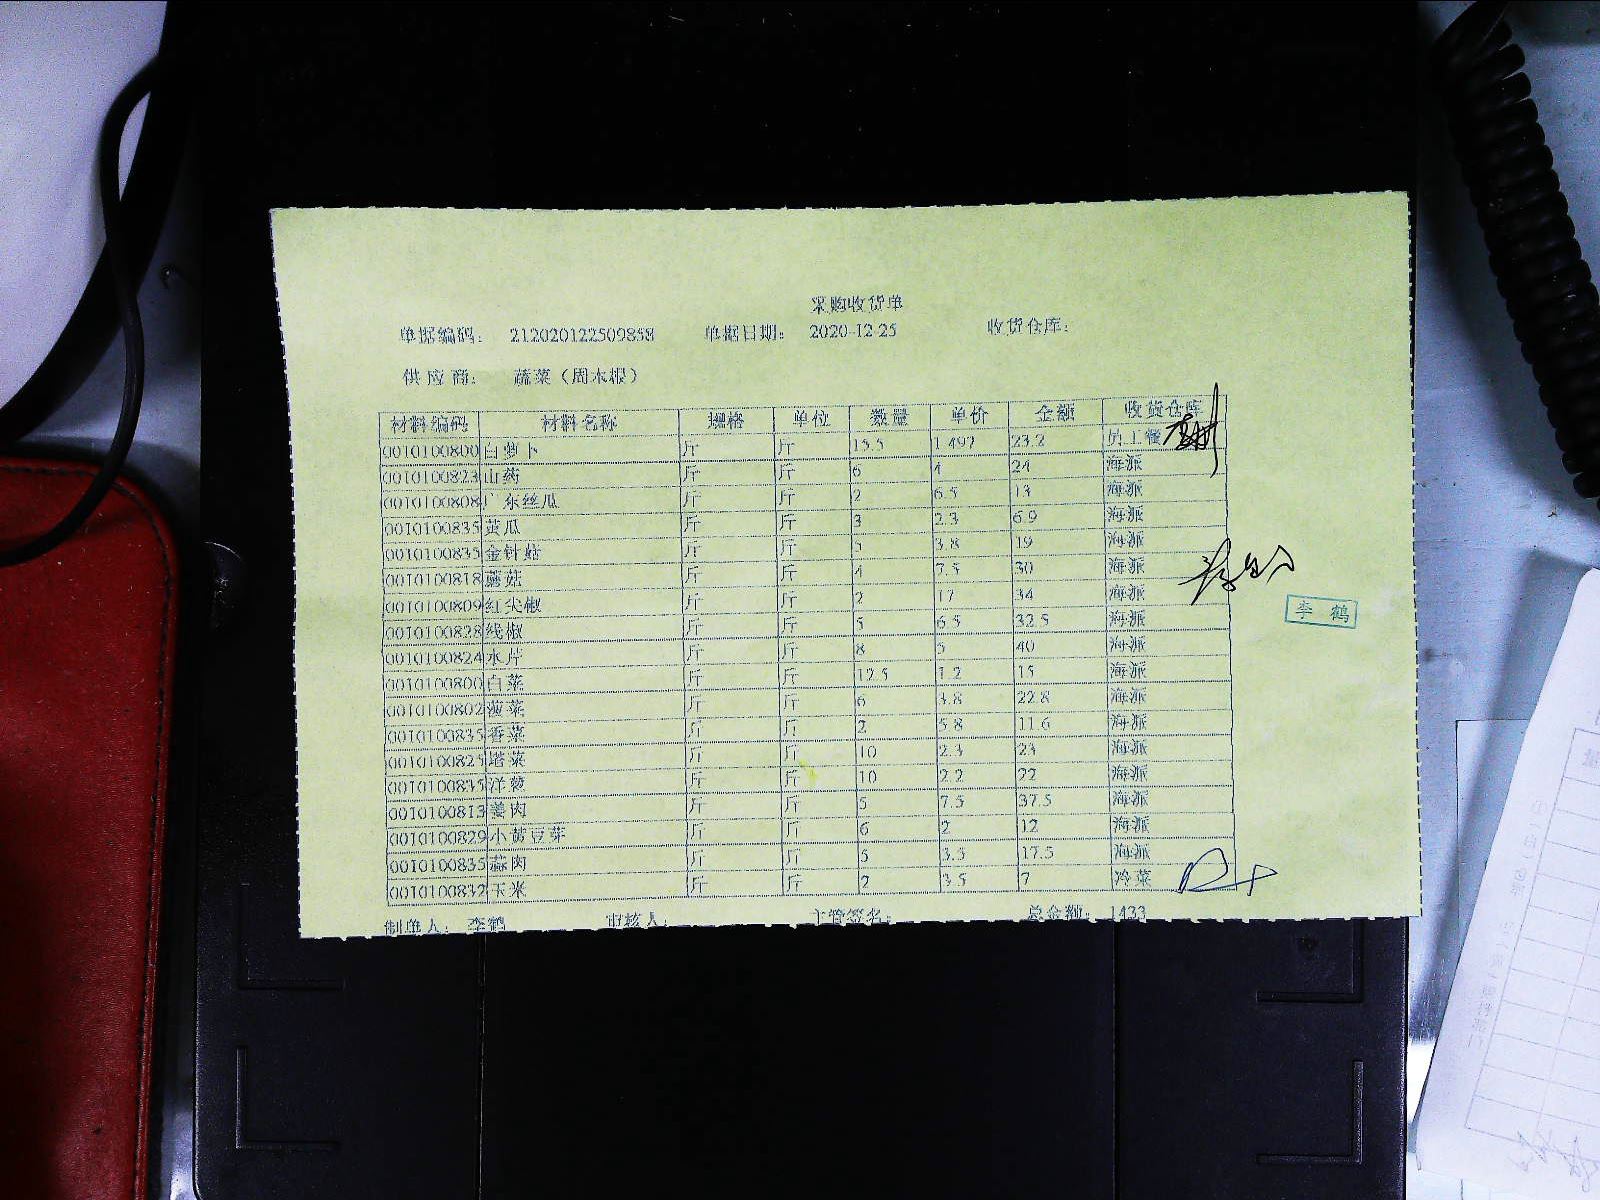 采购收货单
单据编码： 212020122509858 单据日期： 2020-12-25 收货仓库：
供应商： 蔬菜（周本根）
材料编码 材料名称 规格 单位 数量 单价 金额 收货仓库
0010100800 白萝卜 斤 斤 15.5 1.497 23.2 员工餐
0010100823 山药 斤 斤 6 4 24 海派
0010100808 广东丝瓜 斤 斤 2 6.5 13 海派
0010100835 黄瓜 斤 斤 3 2.3 6.9 海派
0010100835 金针菇 斤 斤 5 3.8 19 海派
0010100818 蘑菇 斤 斤 4 7.5 30 海派
0010100809 红尖椒 斤 斤 2 17 34 海派
0010100828 线椒 斤 斤 5 6.5 32.5 海派
0010100824 水芹 斤 斤 8 5 40 海派
0010100800 白菜 斤 斤 12.5 1.2 15 海派
0010100802 菠菜 斤 斤 6 3.8 22.8 海派
0010100835 香菜 斤 斤 2 5.8 11.6 海派
0010100825 塔菜 斤 斤 10 2.3 23 海派
0010100835 洋葱 斤 斤 10 2.2 22 海派
0010100813 姜肉 斤 斤 5 7.5 37.5 海派
0010100829 小黄豆芽 斤 斤 6 2 12 海派
0010100835 蒜肉 斤 斤 5 3.5 17.5 海派
0010100832 玉米 斤 斤 2 3.5 7 冷菜
李鹤
制单人： 李鹤 审核人： 主管签名： 总金额： 1433